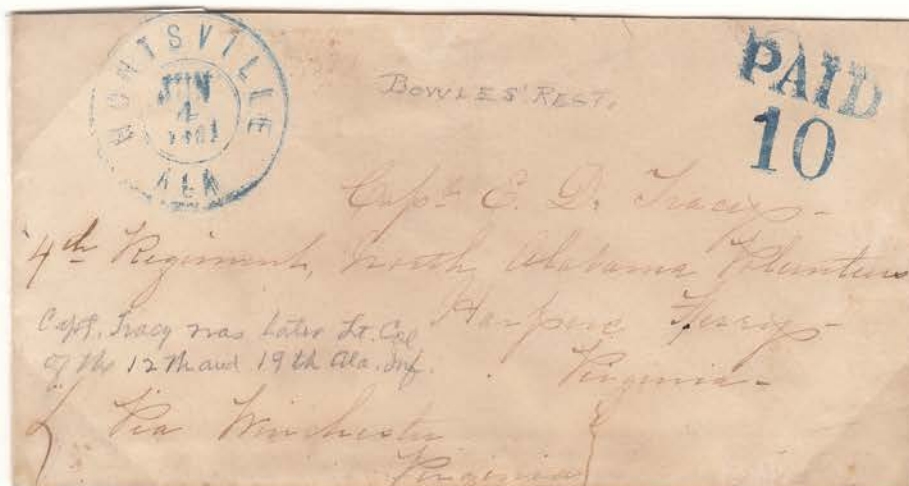 HUNTSVILLE
JUN
4
1861
ALA
PAID
10
BOWLES' REGT.
Capt. E. D. Tracy
4th Regiment, North Alabama Volunteers
Harpers Ferry
Virginia
Capt. Tracy was later Lt. Col
of the 12th and 19th Ala. Inf.
Via Winchester
Virginia